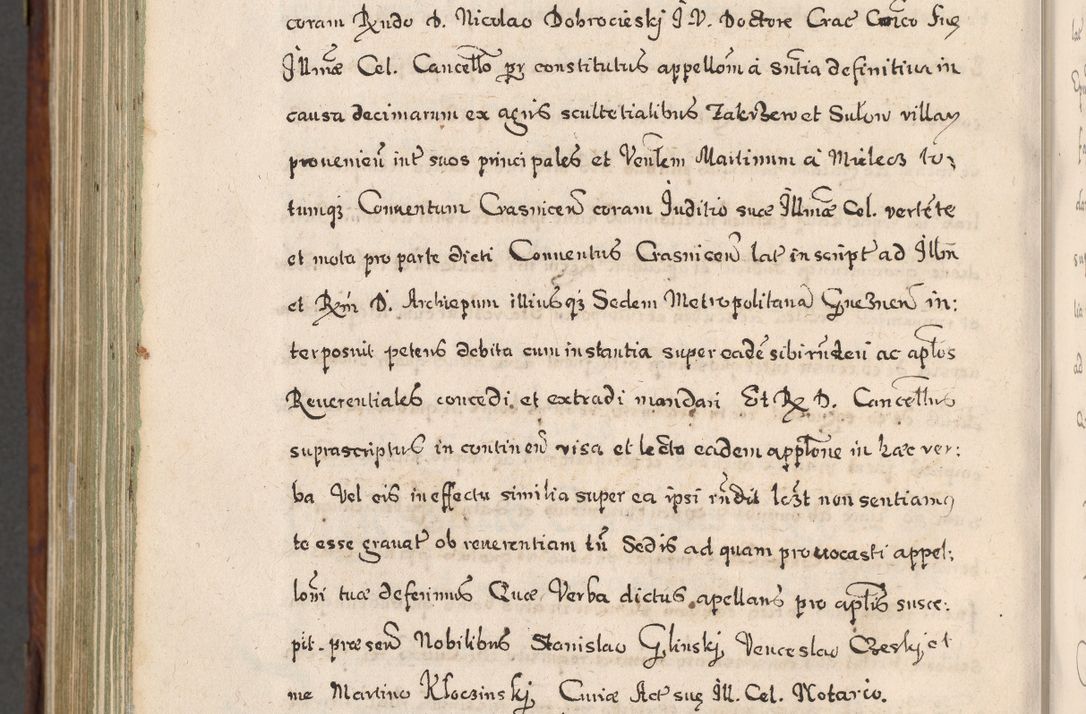 coram Rndo D. Nicolao Dobrocieskj J. V. Doctore Crac Canco Suæ
Jllmæ Cel. Cancello pr constitutus appellom a sntia definitiua in
causa decimarum ex agris scultetialibus Zakrzew et Sulow villar
prouenien int suos principales et Venlem Martinum a Mielecz to-
tumqz Conuentum Crasnicen coram Juditio suæ Jllmæ Cel. vertete
et mota pro parte dicti Conuentus Crasnicen lat in script ad Jllm
et Rm D. Archiepum illiusqz Sedem Metropolitana Gneznen in:
terposuit petens debita cum instantia super eade sibi rnderi ac aplos
Reuerentiales concedi et extradi mandari Et R D. Cancellus
suprascriptus in continen visa et lecta eadem applone in hæc ver:
ba Vel eis in effectu similia super ea ipsi rndit lczt non sentiamus
te esse grauat ob reuerentiam tn Sedis ad quam prouocasti appel:
loni tuæ deferimus Quæ Verba dictus apellans pro aplis susce:
pit. præsen Nobilibus Stanislao Glinskj, Venceslao Czeskj et
me Martino Kloczinskj Curiæ Act suæ Jll. Cel. Notario.